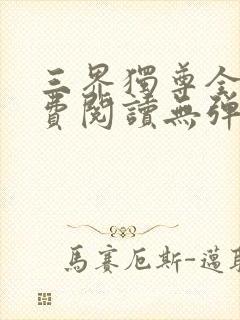 三界獨尊全
費閱讀無彈
馬賽厄斯-邁耶